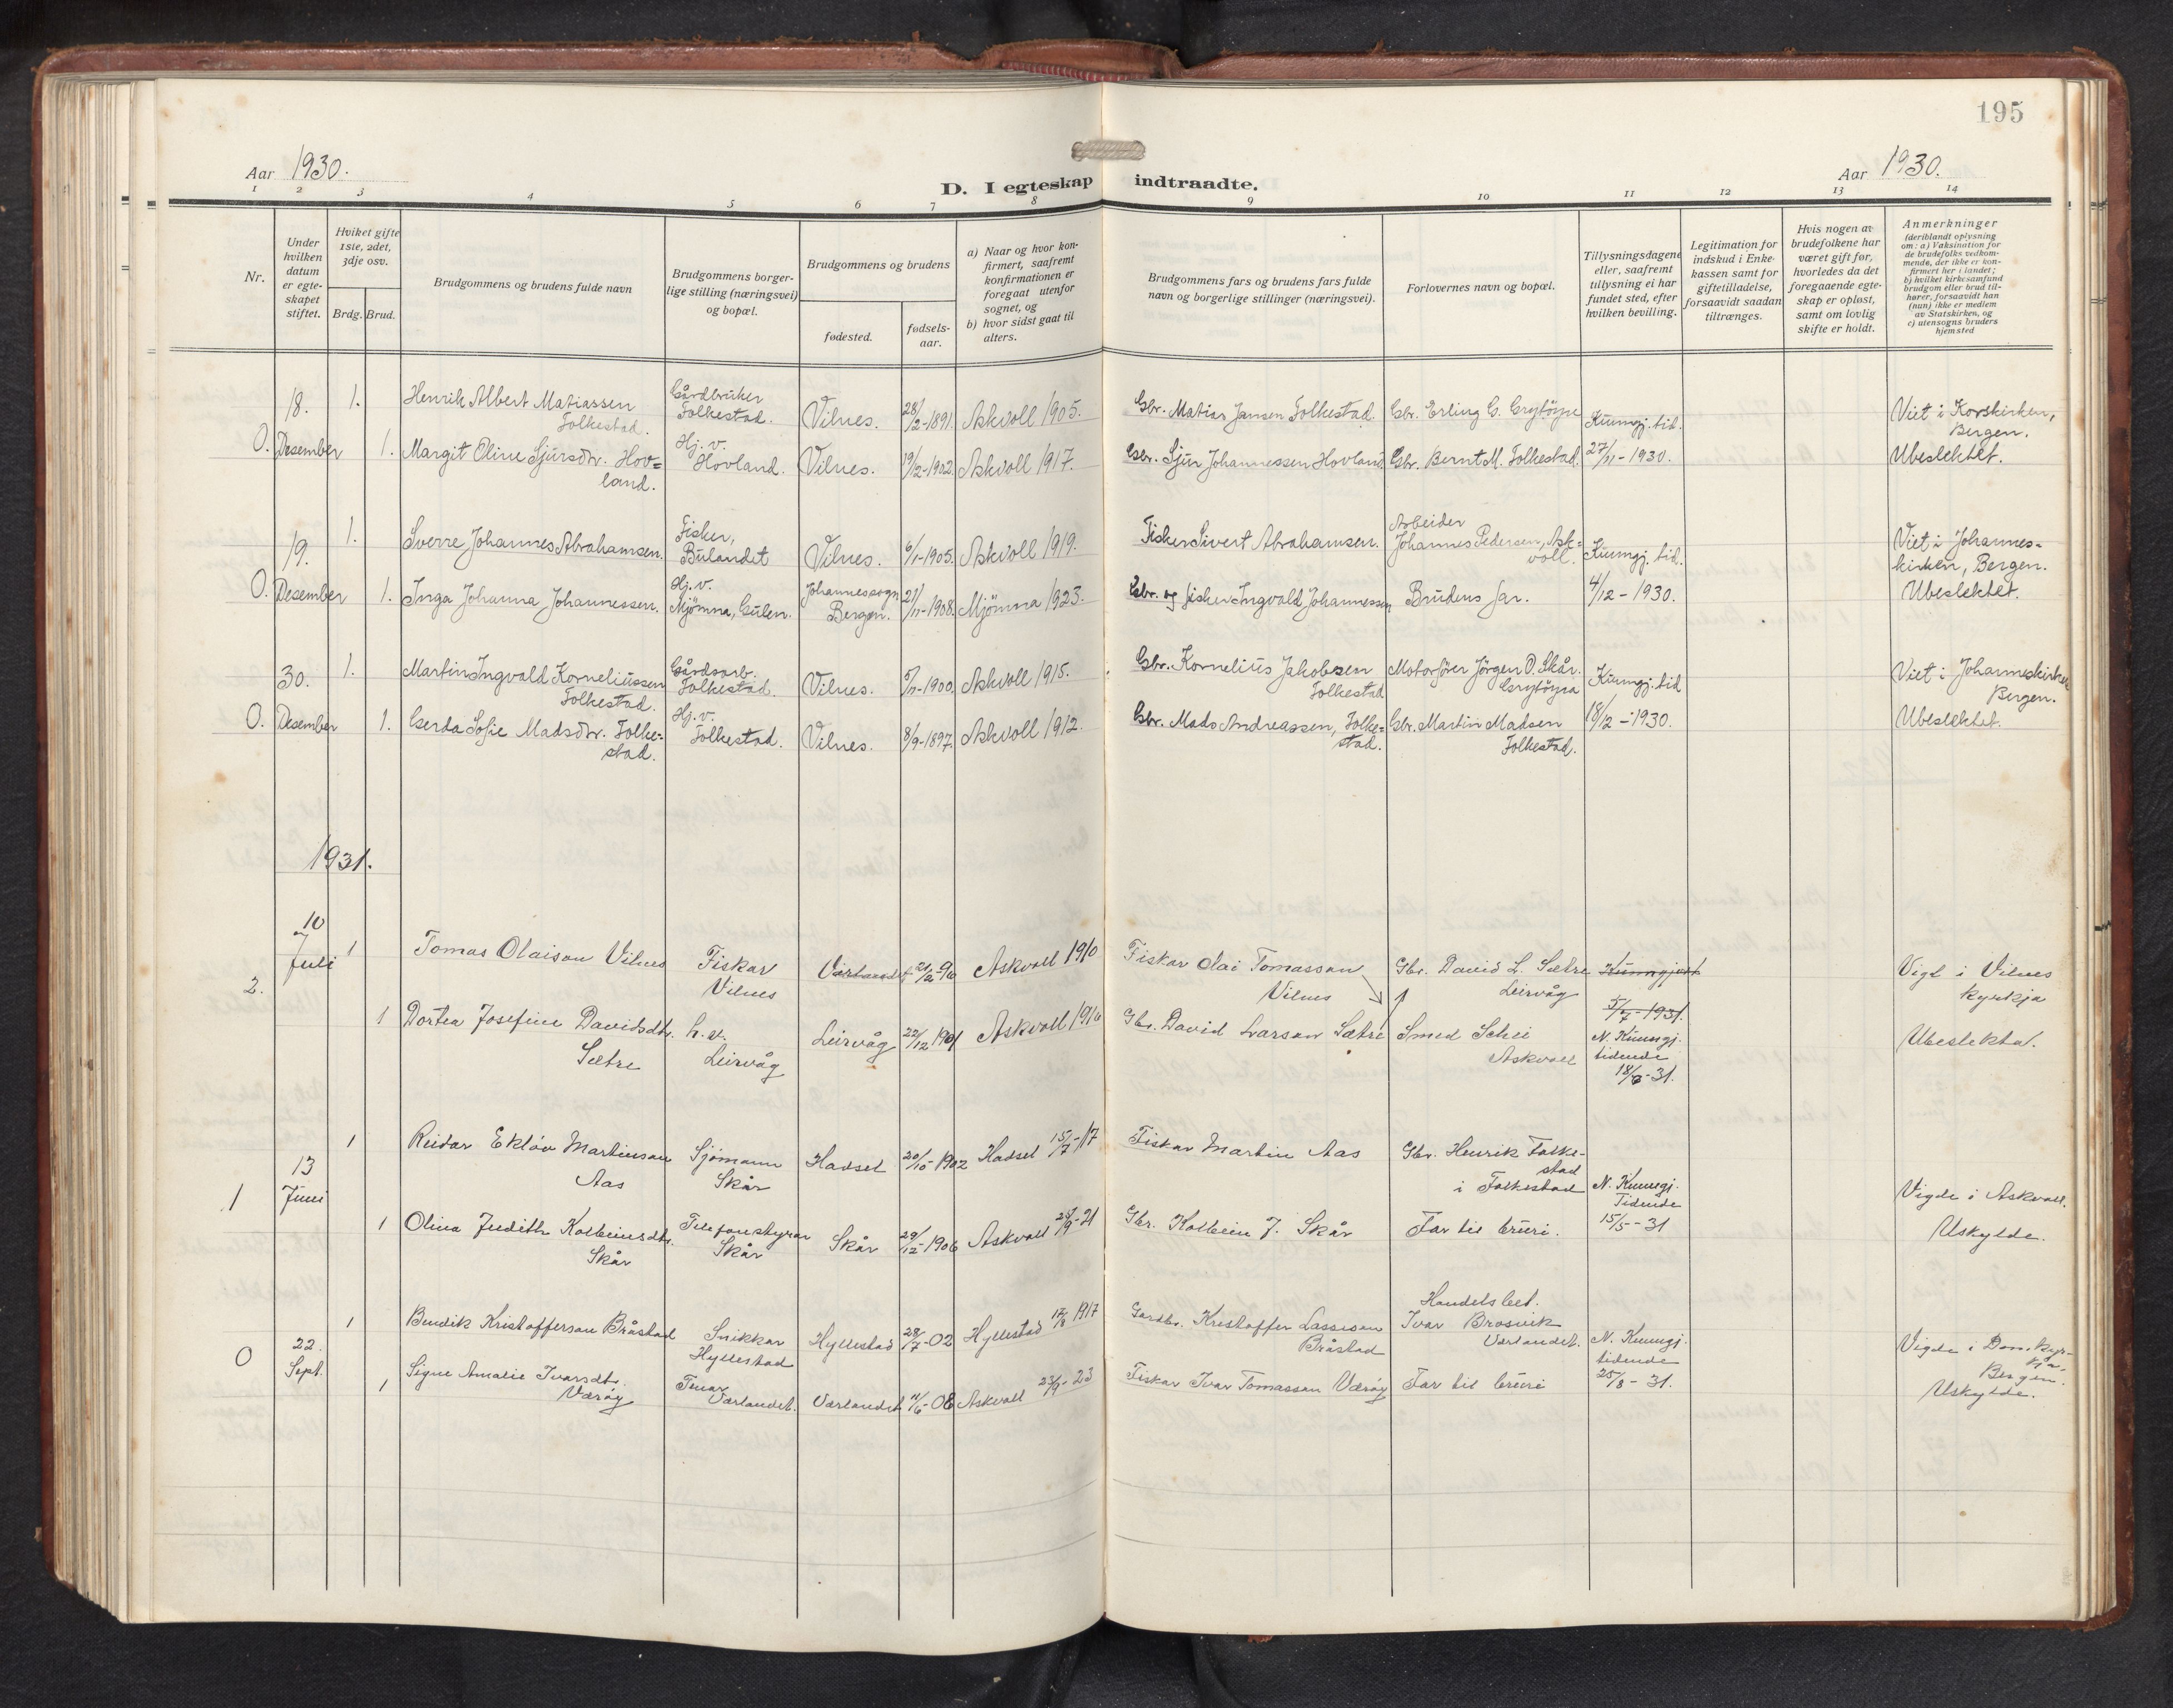 195
Aar 1930.
D. I egteskap indtraadte.
Aar 1930.
1 2 3 4 5 6 7 8 9 10 11 12 13 14
Nr.
Under hvilken datum er egteskapet stiftet.
Hviket gifte 1ste, 2det, 3dje osv.
Brdg. Brud.
Brudgommens og brudens fulde navn
Brudgommens borgerlige stilling (næringsvei) og bopæl.
Brudgommens og brudens
fødested.
fødselsaar.
a) Naar og hvor konfirmert, saafremt konfirmationen er foregaat utenfor sognet, og
b) hvor sidst gaat til alters.
Brudgommens fars og brudens fars fulde navn og borgerlige stillinger (næringsvei).
Forlovernes navn og bopæl.
Tillysningsdagene eller, saafremt tillysning ei har fundet sted, efter hvilken bevilling.
Legitimation for indskud i Enkekassen samt for giftetilladelse, forsaavidt saadan tiltrænges.
Hvis nogen av brudefolkene har været gift før, hvorledes da det foregaaende egteskap er opløst, samt om lovlig skifte er holdt.
Anmerkninger
(deriblandt oplysning om: a) Vaksination for de brudefolks vedkommende, der ikke er konfirmert her i landet; b) hvilket kirkesamfund brudgom eller brud tilhører, forsaavidt han (hun) ikke er medlem av Statskirken, og c) utensogns bruders hjemsted
18. 1. Henrik Albert Matiassen Folkestad. Gårdbruker Folkestad. Vilnes. 28/2-1891. Askvoll 1905. Gbr. Matias Jansen Folkestad. Gbr. Erling G. Grytöyra Kunngj. tid. Viet i Korskirken, Bergen.
0. Desember 1. Margit Oline Sjursdtr. Hovland. Hj. v. Hovland. Vilnes. 19/12-1902. Askvoll 1917. Gbr. Sjur Johannessen Hovland Gbr. Bernt M. Folkestad. 27/11-1930. Ubeslektet.
19. 1. Sverre Johannes Abrahamsen. Fisker, Bulandet Vilnes. 6/1-1905. Askvoll 1919. Fisker Sivert Abrahamsen. Arbeider Johannes Pedersen, Askvoll. Kunngj. tid. Viet i Johanneskirken, Bergen.
0. Desember 1. Inga Johanna Johannessen. Hj. v. Mjömna, Gulen. Johannessogn Bergen. 21/11-1908. Mjömna 1923. Gbr. og fisker Ingvald Johannessen Brudens far. 4/12-1930. Ubeslektet.
30. 1. Martin Ingvald Korneliussen Folkestad. Gårdsarb. Folkestad. Vilnes. 5/11-1900. Askvoll 1915. Gbr. Kornelius Jakobsen Folkestad Motorfører Jörgen O. Skår. Grytöyra Kunngj. tid Viet i Johanneskirken Bergen.
0. Desember 1. Gerda Sofie Madsdtr. Folkestad. Hj. v. Folkestad. Vilnes. 8/9-1897. Askvoll 1912. Gbr. Mads Andreassen, Folkestad. Gbr. Martin Madsen Folkestad. 18/12-1930. Ubeslektet.
1931.
10 Juli 1 Tomas Olaison Vilnes Fiskar Vilnes Værlandet 21/2-90 Askvoll 1910 Fiskar Olai Tomasson Vilnes Gbr. David L. Sætre Leirvåg Kunngjort 5/7-1931. Vigd i Vilnes kyrkja
2. 1 Dortea Josefine Davidsdtr. Sætre h.v. Leirvåg Leirvåg 22/12 1901 Askvoll 1916 Gbr. David Larson Sætre Smed Schei Askvoll N. Kunngj. tidende 18/6-31. Ubeslektat.
13 1 Reidar Ekløv Martinson Aas Sjömann Skår Hadsel 20/10-1902 Hadsel 15/7-17 Fiskar Martin Aas Gbr. Henrik Folkestad i Folkestad N. Kunngj. Tidende 15/5-31 Vigde i Askvoll.
1 Juni 1 Olina Judith Kolbeinsdtr. Skår Telefonstyrar Skår Skår 29/12-1906 Askvoll 25/9-21 Gbr. Kolbein J. Skår Far til bruri. Uskylde.
22. 1 Bendik Kristofferson Bråstad Snikkar Hyllestad Hyllestad 28/7-02 Hyllestad 1917 Gardbr. Kristoffer Lasseson Bråstad Handelsbet. Ivar Brosvik Værlandet. N. Kunngj. tidende 25/8-31. Vigde i Domkyrkja, Bergen.
0 Sept. 1 Signe Amalie Ivarsdtr. Værøy Tenar Værlandet. Værlandet 11/6-08 Askvoll 23/9-23 Fiskar Ivar Tomasson Værøy Far til bruri Uskylde.